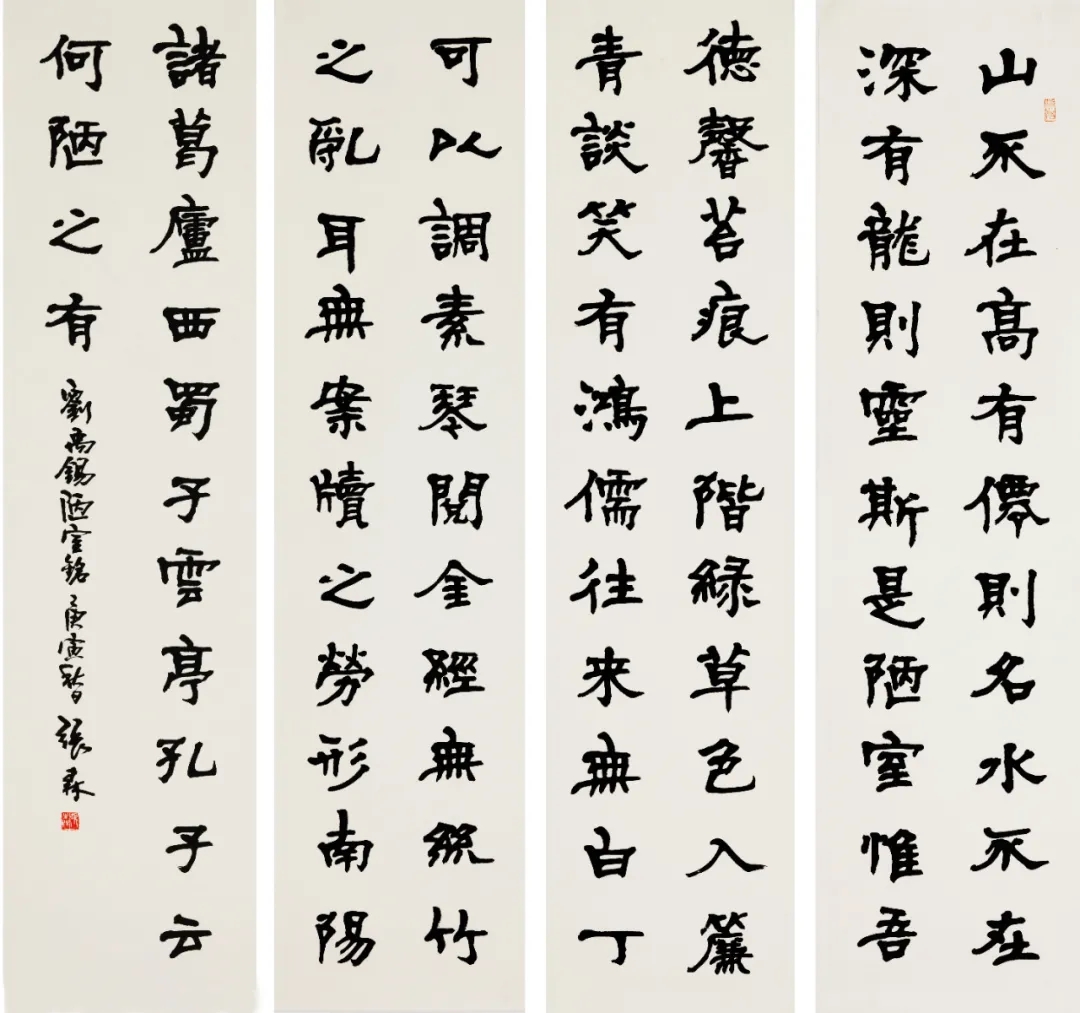 山不在高有僊則名水不在
深有龍則靈斯是陋室惟吾
德馨苔痕上階綠草色入簾
青談笑有鴻儒往来無白丁
可以調素琴閱金經無絲竹
之亂耳無案牘之勞形南陽
諸葛廬西蜀子雲亭孔子云
何陋之有 劉禹錫陋室銘 庚寅秋日 張森